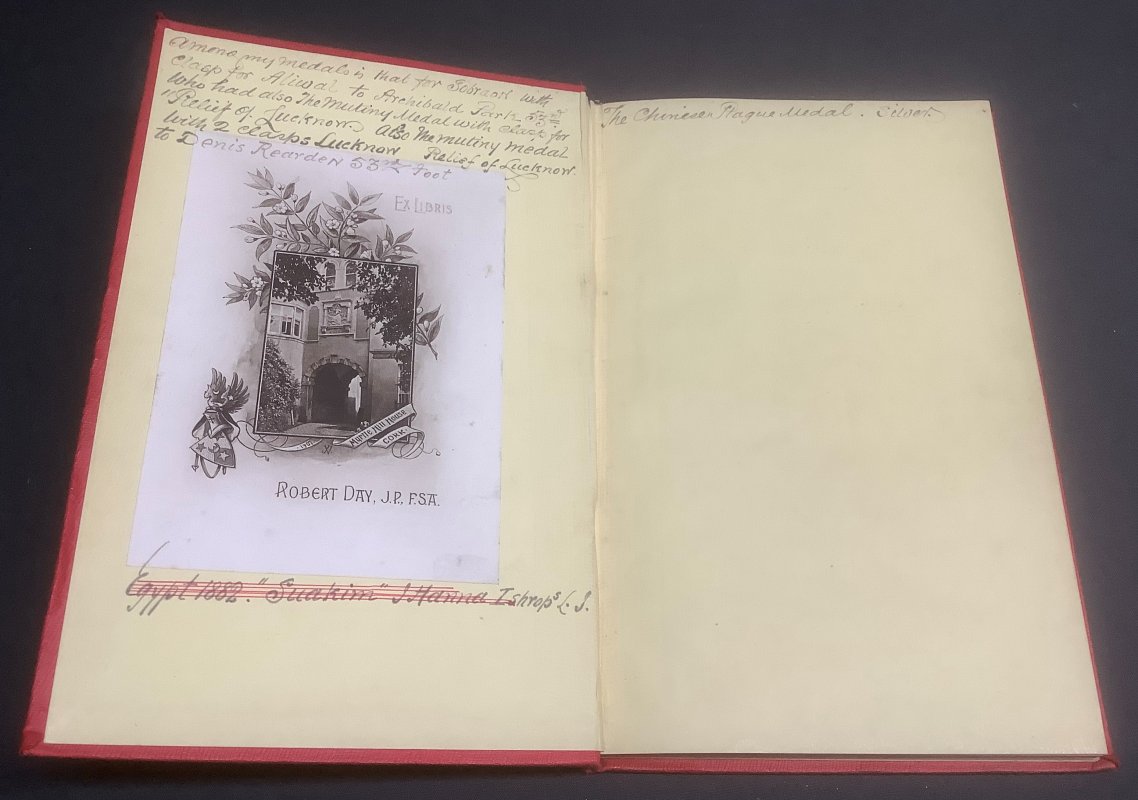 Among my medals is that for Sobraon with
Clasp for Aliwal to Archibald Park 53rd
who had also The Mutiny Medal with Clasp for
"Relief of Lucknow" Also The mutiny medal
with 2 clasps Lucknow Relief of Lucknow.
to Denis Rearden 53rd Foot
EX LIBRIS
MYRTLE HILL HOUSE
CORK.
ROBERT DAY, J.P., F.S.A.
Egypt 1882. "Suakim" J. Hanna I Shrops L. I.
The Chinese Plague Medal. Silver